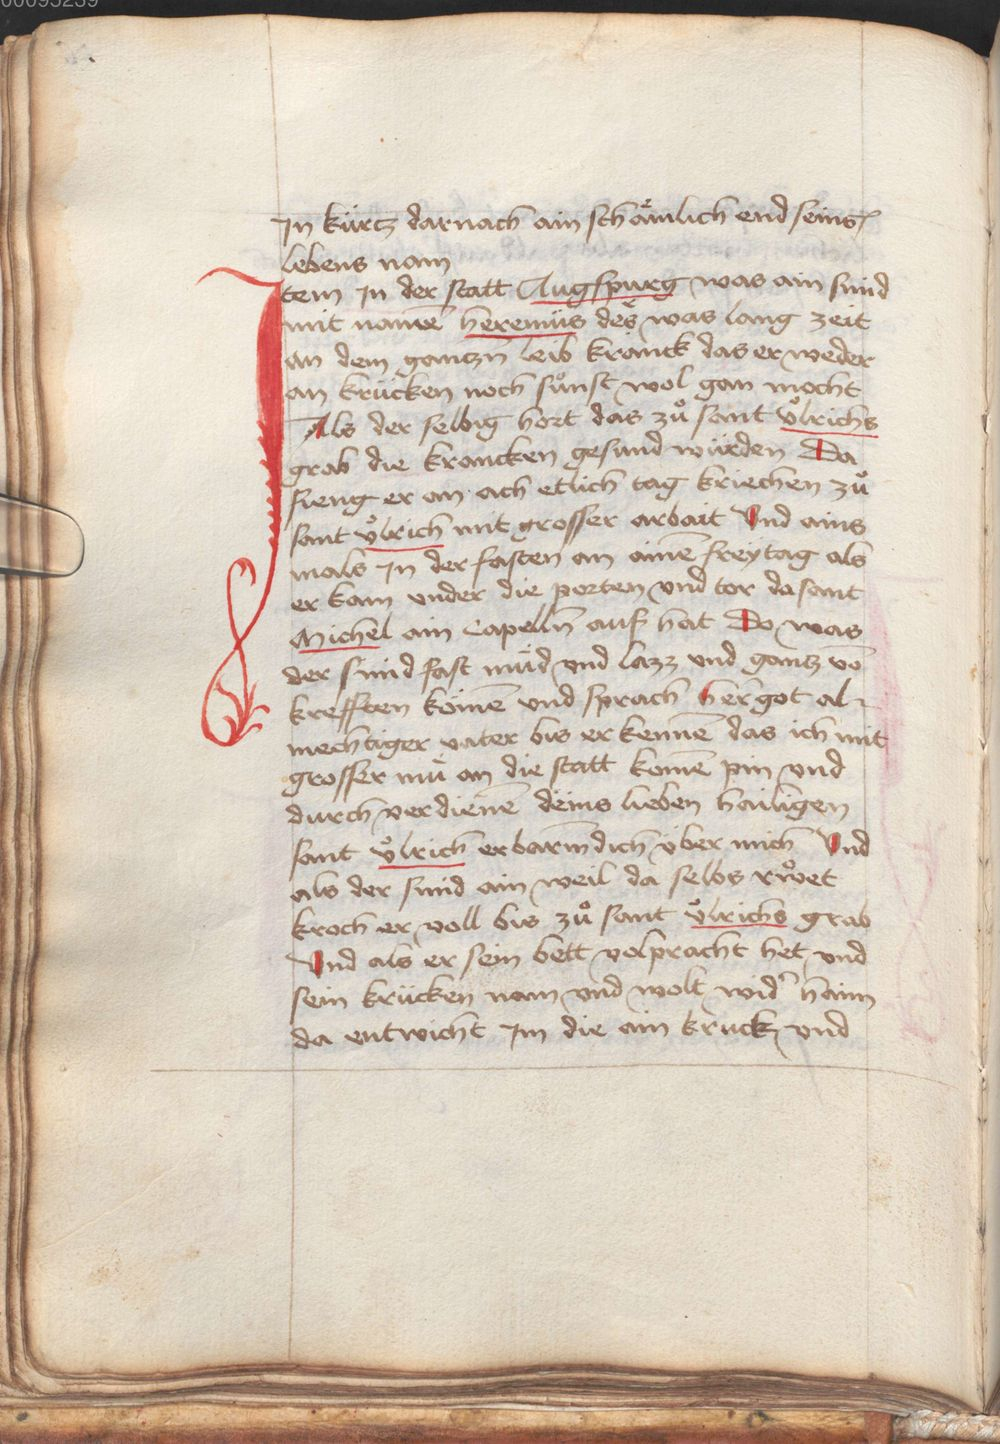 00095239
In kürtz darnach ain schämlich end seins
lebens nam
Item In der statt Augspurg was ain sund
mit namē heremüs des was lang zeit
an dem gantzn̄ leib kranck das er weder
an krücken noch sůnst wol gan mocht
Als der selbig hort das zů sant ůlrichs
grab die krancken gesund würden Da
fieng er an ach etlich tag kriechen zů
sant ůlrich mit grosser arbait Vnd ains
mals In der fasten an ainē freytag als
er kam vnder die porten vnd tor da sant
Michel ain Capelln̄ auf hat Do was
der sund fast müd vnd lazz vnd gantz vō
krefften komē vnd sprach herr got al-
mechtiger vater bis erkennē das ich mit
grosser mü an die statt komē pin vnd
durch verdienē deins lieben hailigen
sant ůlrich erbarm̄ dich über mich Vnd
als der sund ain weil da selbs rwet
kroch er voll bis zů sant ůlrichs grab
Vnd als er sein bett volpracht het vnd
sein krücken nam vnd wolt wid' haim
da entwicht Im die ain kruck vnd